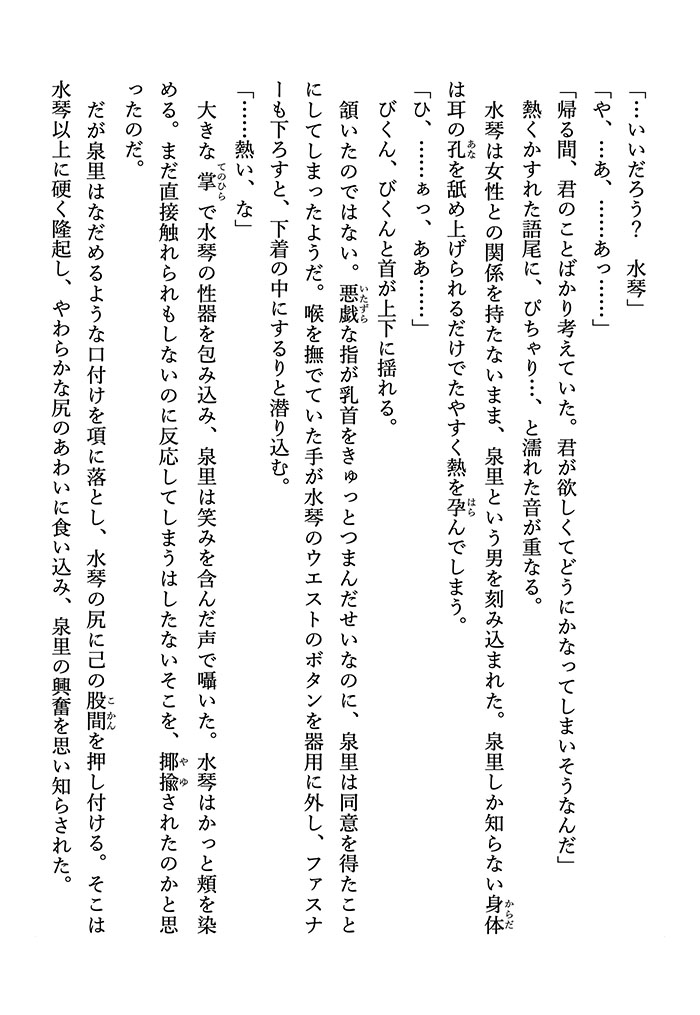 「…いいだろう?　水琴」
「や、…あ、……あっ……」
「帰る間、君のことばかり考えていた。君が欲しくてどうにかなってしまいそうなんだ」
熱くかすれた語尾に、ぴちゃり…、と濡れた音が重なる。
水琴は女性との関係を持たないまま、泉里という男を刻み込まれた。泉里しか知らない身体
は耳の孔を舐め上げられるだけでたやすく熱を孕んでしまう。
「ひ、……ぁっ、ああ……」
びくん、びくんと首が上下に揺れる。
頷いたのではない。悪戯な指が乳首をきゅっとつまんだせいなのに、泉里は同意を得たこと
にしてしまったようだ。喉を撫でていた手が水琴のウエストのボタンを器用に外し、ファスナ
ーも下ろすと、下着の中にするりと潜り込む。
「……熱い、な」
大きな掌で水琴の性器を包み込み、泉里は笑みを含んだ声で囁いた。水琴はかっと頬を染
める。まだ直接触れられもしないのに反応してしまうはしたないそこを、揶揄されたのかと思
ったのだ。
だが泉里はなだめるような口付けを項に落とし、水琴の尻に己の股間を押し付ける。そこは
水琴以上に硬く隆起し、やわらかな尻のあわいに食い込み、泉里の興奮を思い知らされた。